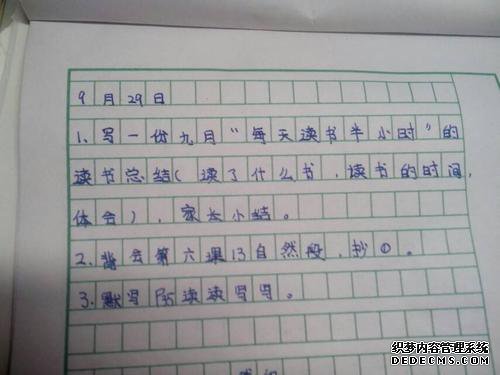 9月29日
1、写一份九月“每天读书半小时”的
读书总结(读了什么书,读书的时间,
体会),家长小结。
2、背会第六课13自然段,抄①。
3、默写P35读读写写。
织梦内容管理系统
DEDECMS.COM